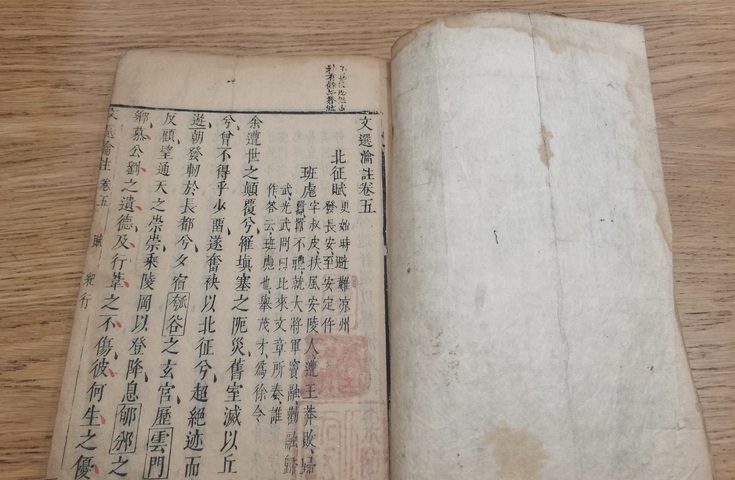 文選瀹註卷五
北征賦 更始時避難凉州
發長安至安定作
班彪 字叔皮扶風安陵人遭王莽敗歸
囂囂不禮就大將軍竇融勸融歸
武光武問曰比來文章所奏誰
作答云班彪也舉茂才爲徐令
余遭世之顛覆兮罹塡塞之阨災舊室滅以丘
兮曾不得乎少畱遂奮袂以北征兮超絕迹而
遊朝發軔於長都兮夕宿瓠谷之玄宮歷雲門
反顧望通天之崇崇乘陵岡以登降息郇邠之
鄉慕公劉之遺德及行葦之不傷彼何生之優
文選瀹註 卷五 賦 紀行